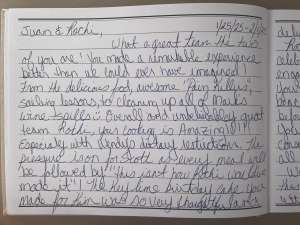 Juan & Rochi, 1/25/25 - 2/1/25
What a great team the two
of you are! You made a remarkable experience
better than we could ever have imagined!
From the delicious food, awesome "Pain Killers",
sailing lessons, to cleaning up all of Marks
wine spills :) Overall and unbelievably great
team. Rochi, your cooking is Amazing!!!!
Especially with Wendy's dietary restrictions. The
pressure is on for Scott as every meal will
be followed by "this isn't how Rochi would have
made it"! The Key lime birthday cake you
made for him was so very thoughtful.